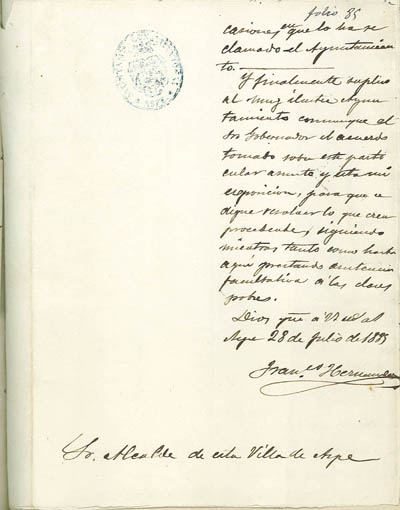 folio 85
casiones en que lo ha re
clamado el Ayuntamien
to.
Y finalmente suplico
al muy ilustre Ayun
tamiento comunique al
Sor Gobernador el acuerdo
tomado sobre este parti
cular asunto y esta mi
exposicion, para que se
digne resolver lo que crea
procedente; siguiendo
mientras tanto como hasta
aquí prestando asistencia
facultativa a las clases
pobres.
Dios gue a V
Aspe 28 de Julio de 1885
Fran.co Hernandez
Sr. Alcalde de esta Villa de Aspe